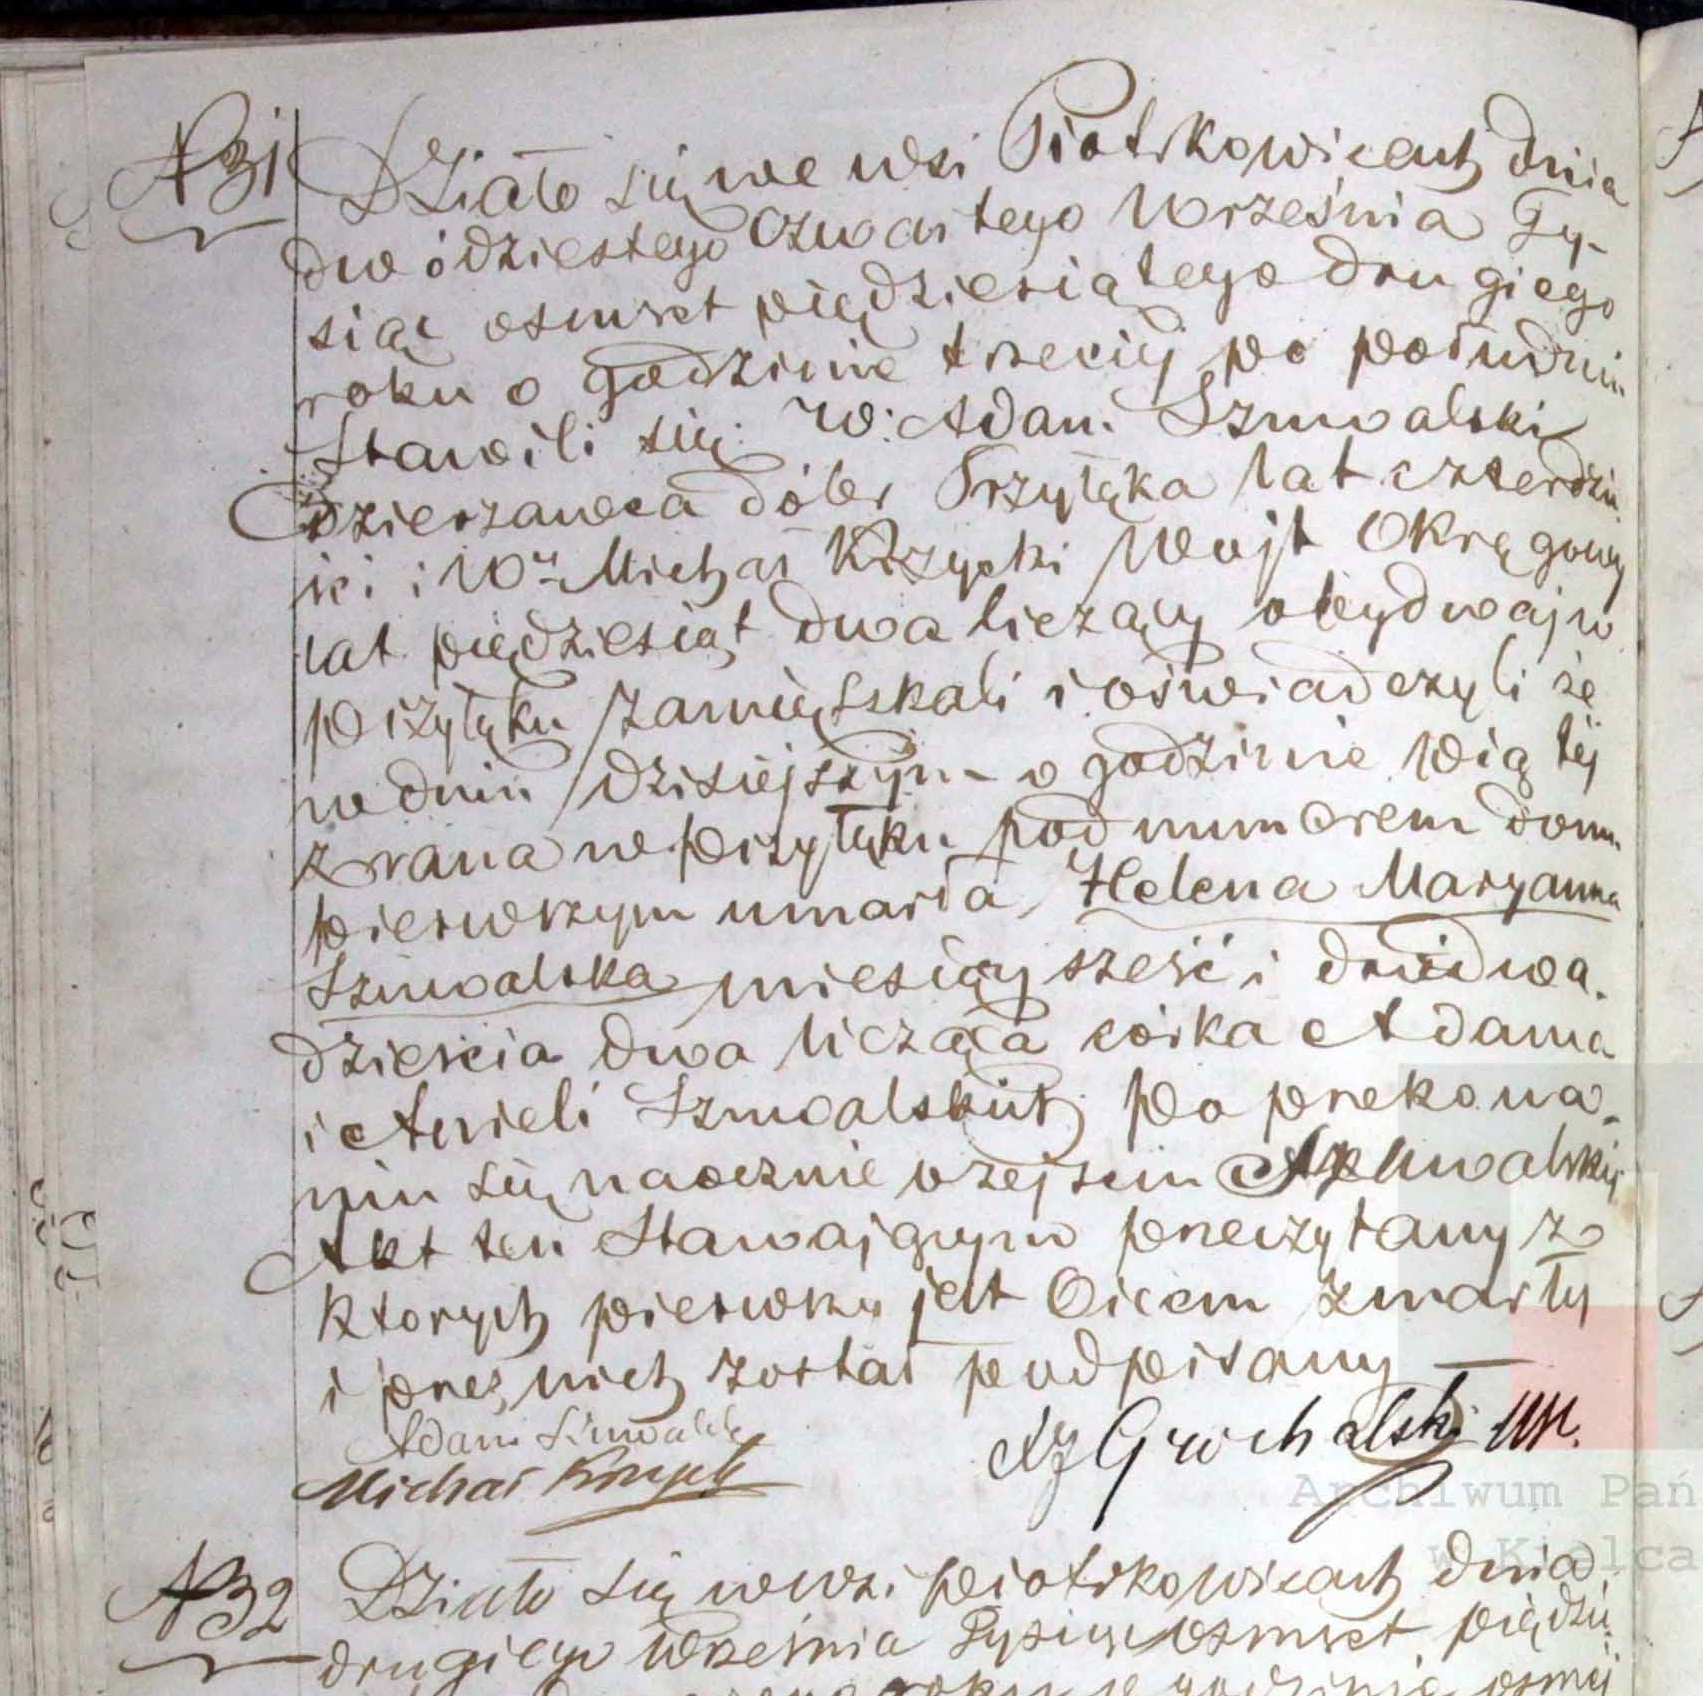 N 31
Działo się we wsi Piotrkowicach dnia
dwódziestego Czwartego Września Ty-
siąc osmset piędziesiątego drugiego
roku o godzinie trzeciej po południu
Stawili się W: Adam Szuwalski
Dzierzawca dóbr Przyłęka lat czterdzie
ści i Wny Michał Krzycki Wójt Okręgowy
lat piędziesiąt dwa liczący obydwaj w
Przyłęku zamięszkali i oświadczyli że
w dniu dzisiejszym o godzinie piątej
z rana w Przyłęku pod numerem domu
pierwszym umarła Helena Maryanna
Szuwalska miesięcy sześć i dni dwa.
dzieścia dwa licząca córka Adama
i Anieli Szuwalskich Po przekona.
niu się naocznie o zejściu Szuwalskiej
Akt ten Stawającym przeczytany z
ktorych pierwszy jest Oicem zmarły
i przez nich został podpisany —
Adam Szuwalski
Michał Krzycki
XJ Grochalski
N 32
Działo się we wsi Piotrkowicach dnia
drugiego Września Tysiąc osmset piędzie
roku o godzinie osmej
Archiwum Pań
w Kielca